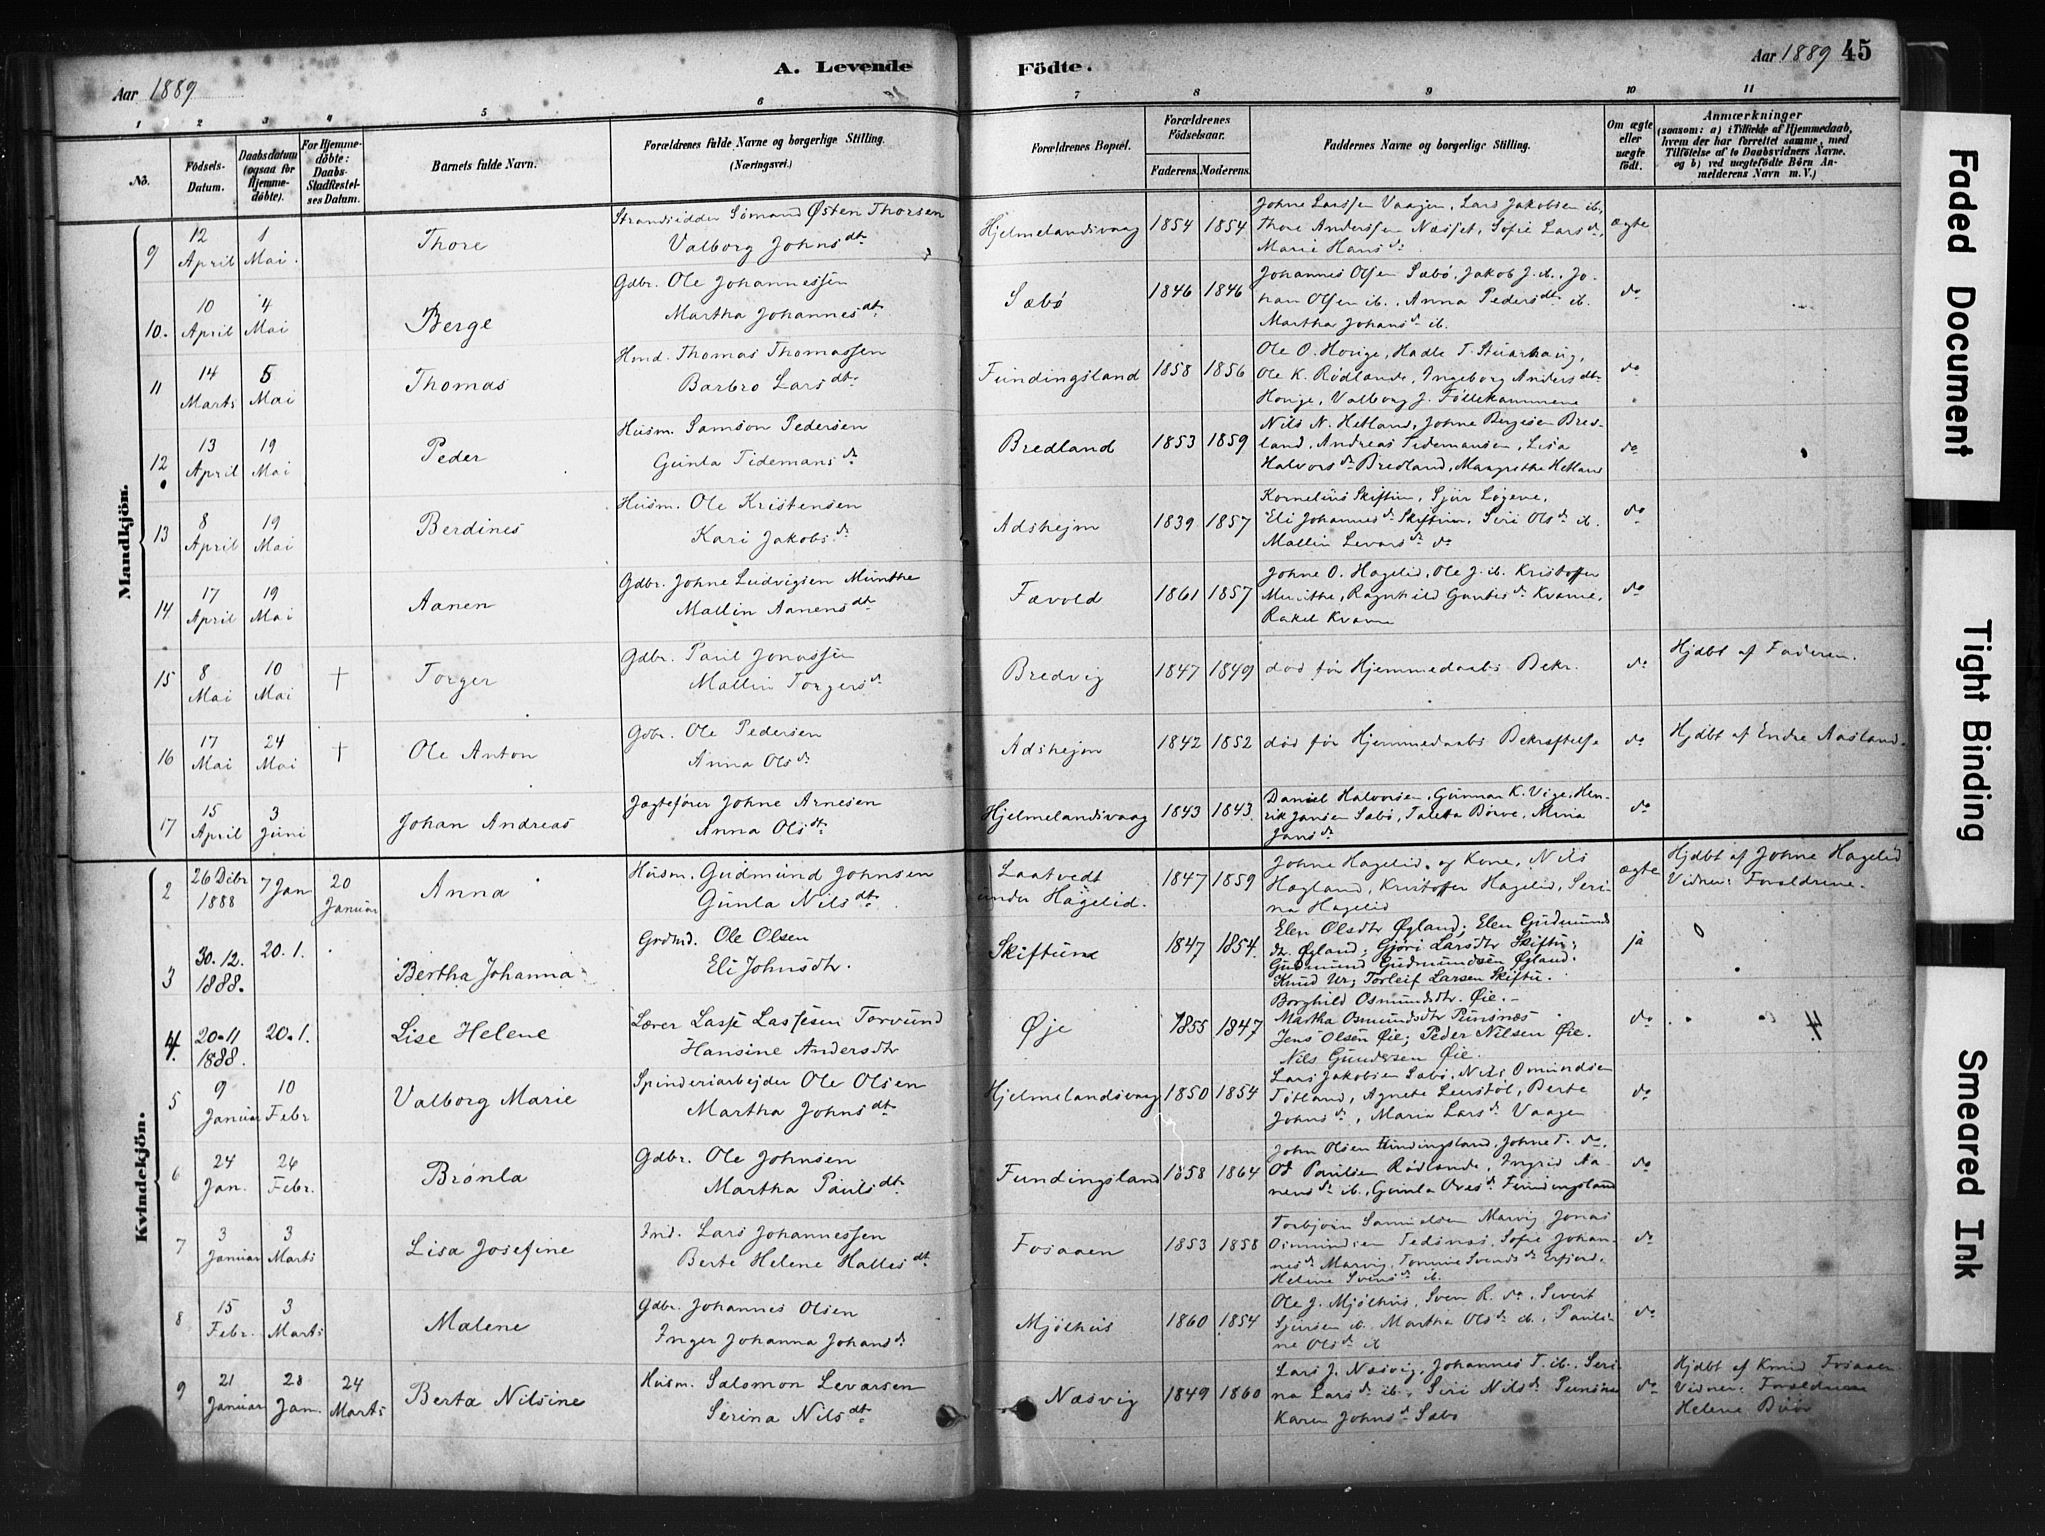 Aar 1889
A. Levende
Födte.
Aar 1889 45
1 2 3 4 5 6 7 8 9 10 11
No.
Födsels-
Datum.
Daabsdatum
(ogsaa for
Hjemme-
døbte).
For Hjemme-
døbte:
Daabs-
Stadfæstel-
ses Datum.
Barnets fulde Navn.
Forældrenes fulde Navne og borgerlige Stilling.
(Næringsvei.)
Forældrenes Bopæl.
Forældrenes
Födselsaar.
Faderens. Moderens.
Faddernes Navne og borgerlige Stilling.
Om ægte
eller
uægte
födt.
Anmærkninger
(saasom: a) i Tilfælde af Hjemmedaab,
hvem der har forrettet samme, med
Tilföielse af to Daabsvidners Navne.
og b) ved uægtefödte Börn An-
melderens Navn m. V.)
Mandkjön.
9
12 April
1 Mai.
Thore
Strandsidder Sømand Østen Thorsen
Valborg Johnsdt
Hjelmelandsvaag
1854 1854
Johne Larssen Vaagen, Lars Jakobsen ib,
Thore Anderssen Næsset, Sofie Larsd,
Marie Hansd
ægte
10.
10 April
4 Mai
Berge
Gdbr. Ole Johannessen
Martha Johannesdt
Sæbø
1846 1846
Johannes Olsen Sæbø, Jakob J. ib., Jo-
han Olsen ib., Anna Pedersdt ib.
Martha Johansd ib.
do
11
14 Marts
5 Mai
Thomas
Hmd. Thomas Thomassen
Barbro Larsdt
Fundingsland
1858 1856
Ole O. Houge, Hadle T. Stuarhaug,
Ole K. Rødlande, Ingeborg Andersdt
Houge, Valborg J.Føllekammene
do
12
13 April
19 Mai
Peder
Husm. Samson Pedersen
Gunla Tidemansd
Bredland
1853 1859
Nils N. Hetland, Johne Bergesen Bred-
land, Andreas Tidemansen, Lisa
Halvorsd Bredland, Margrethe Hetland
do
13
8 April
19 Mai
Berdines
Husm. Ole Kristensen
Kari Jakobsd
Adshejm
1839 1857
Kornelius Skiftun, Sjur Løgene,
Eli Johannesd Skiftun, Siri Olsd ib.
Mallin Levarsd do
do
14
17 April
19 Mai
Aanen
Gdbr. Johne Ludvigsen Munthe
Mallin Aanensdt
Fævold
1861 1857
Johne O. Hagelid, Ole J. ib. Kristoffer
Munthe, Ragnhild Gautesd Kvame,
Rakel Kvame
do
15
8 Mai
10 Mai
†
Torger
Gdbr. Paul Jonassen
Mallin Torgersd
Bredvig
1847 1849
død før Hjemmedaabs Bekr.
do
Hjdbt af Faderen.
16
17 Mai
24 Mai
†
Ole Anton
Gdbr. Ole Pedersen
Anna Olsd
Adshejm
1842 1852
død før Hjemmedaabs Bekræftelse
do
Hjdbt af Endre Aasland.
17
15 April
3 Juni
Johan Andreas
Jagtefører Johne Arnesen
Anna Olsdt
Hjelmelandsvaag
1843 1843
Daniel Halvorsen, Gunnar K. Vige, Hen-
rik Jansen Sabø, Taletta Børve, Mina
Jansd
do
Kvindekjön.
2
26 Dcbr 1888
7 Jan
20 Januar
Anna
Husm. Gudmund Johnsen
Gunla Nilsdt
Laatvedt
under Hagelid.
1847 1859
Johne Hagelid og Kone, Nils
Hægland, Kristoffer Hagelid, Seri-
na Hagelid
ægte
Hjdbt af Johne Hagelid
Vidner: Forældrene.
3
30.12. 1888.
20.1.
Bertha Johanna
Grdmd. Ole Olsen
Eli Johnsdtr.
Skiftune
1847 1854
Elen Olsdtr Øgland; Elen Gudmunds
dtr. Øgland; Gjøri Larsdtr Skiftu;
Gudmund Gudmundsen Øgland.
Knud Ur; Torleif Larsen Skiftu.
ja
0
4.
20.11 1888.
20.1.
Lise Helene
Lærer Lasse Lassesen Torvund
Hansine Andersdtr
Øje
1855 1847
Borghild Osmundsdtr. Øie.-
Martha Osmundsdtr Punsnæs
Jens Olsen Øie; Peder Nilsen Øie.
Nils Gundersen Øie.
do
4.
5
9 Januar
10 Febr
Valborg Marie
Spinderiarbejder Ole Olsen
Martha Johnsdt
Hjelmelandsvaag
1850 1854
Lars Jakobsen Sabø, Nils Omundsen
Tøtland, Agnete Leirstøl, Berte
Johnsd, Maria Larsd Vaagen
do
6
24 Jan.
26 Febr.
Brønla
Gdbr. Ole Johnsen
Martha Paulsdt
Fundingsland
1858 1864
John Olsen Fundingsland, Johne T. do,
Od Paulsen Rødlande, Ingrid Aa-
nensd ib., Gunla Ovesd Fundingsland
do
7
3 Januar
3 Marts
Lisa Josefine
Ind. Lars Johannessen
Berte Helene Hallesdt
Fosaaen
1853 1858
Torbjørn Samuelsen Marvig, Jonas
Osmundsen Tedsnæs, Sofie Johan-
nesd Marvig, Tomine Svendsd Erfjord,
Helene Svensd ib.
do
8
15 Febr.
3 Marts
Malene
Gdbr. Johannes Olsen
Inger Johanna Johansd
Mjølhus
1860 1854
Ole J. Mjølhus, Sven R. do, Sivert
Sjursen ib. Martha Olsd ib, Pauli-
ne Olsd ib
do
9
21 Januar
28 Jan.
24 Marts
Berta Nilsine
Husm. Salomon Levarsen
Serina Nilsdt
Næsvig
1849 1860
Lars J. Næsvig, Johannes T. ib. Seri-
na Larsd ib, Siri Nilsd Punsnæs
Karen Johnsd Sabø
do
Hjdbt af Knud Fosaaen
Vidner: Forældrene
Helene
Faded Document
Tight Binding
Smeared Ink